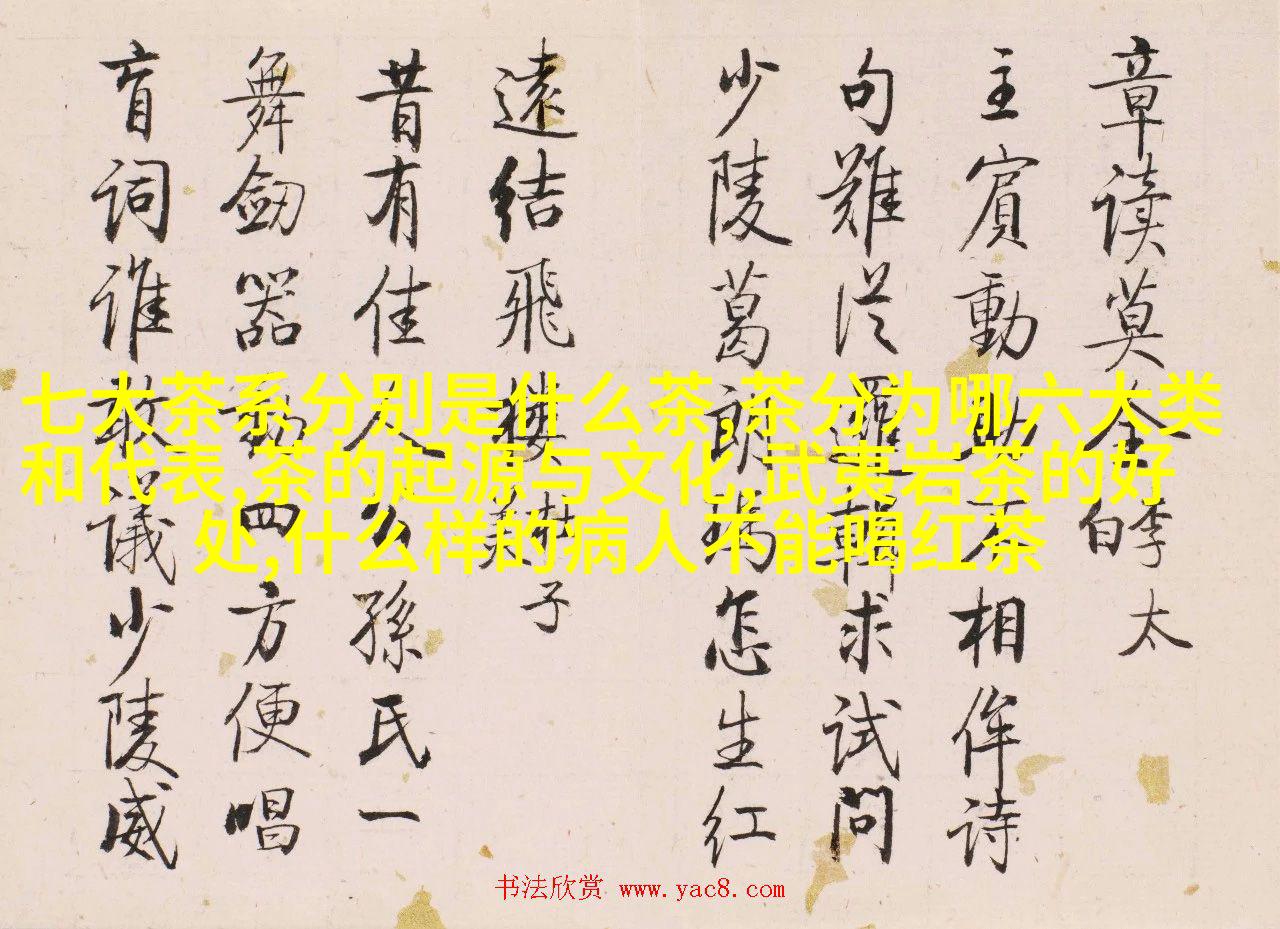 章读莫全李太白
主賓動助不相侔诗
句難從鞨求试问
少陵葛朗玛怎生红
遠结飛樓杜子美
昔有佳人公孫氏一
舞劔器動四方便唱
盲词谁敢议少陵威
七大茶系分别是什么茶,茶分为哪六大类
和代表,茶的起源与文化,武夷岩茶的好
处,什么样的病人不能喝红茶
书法欣赏 www.yac8.com